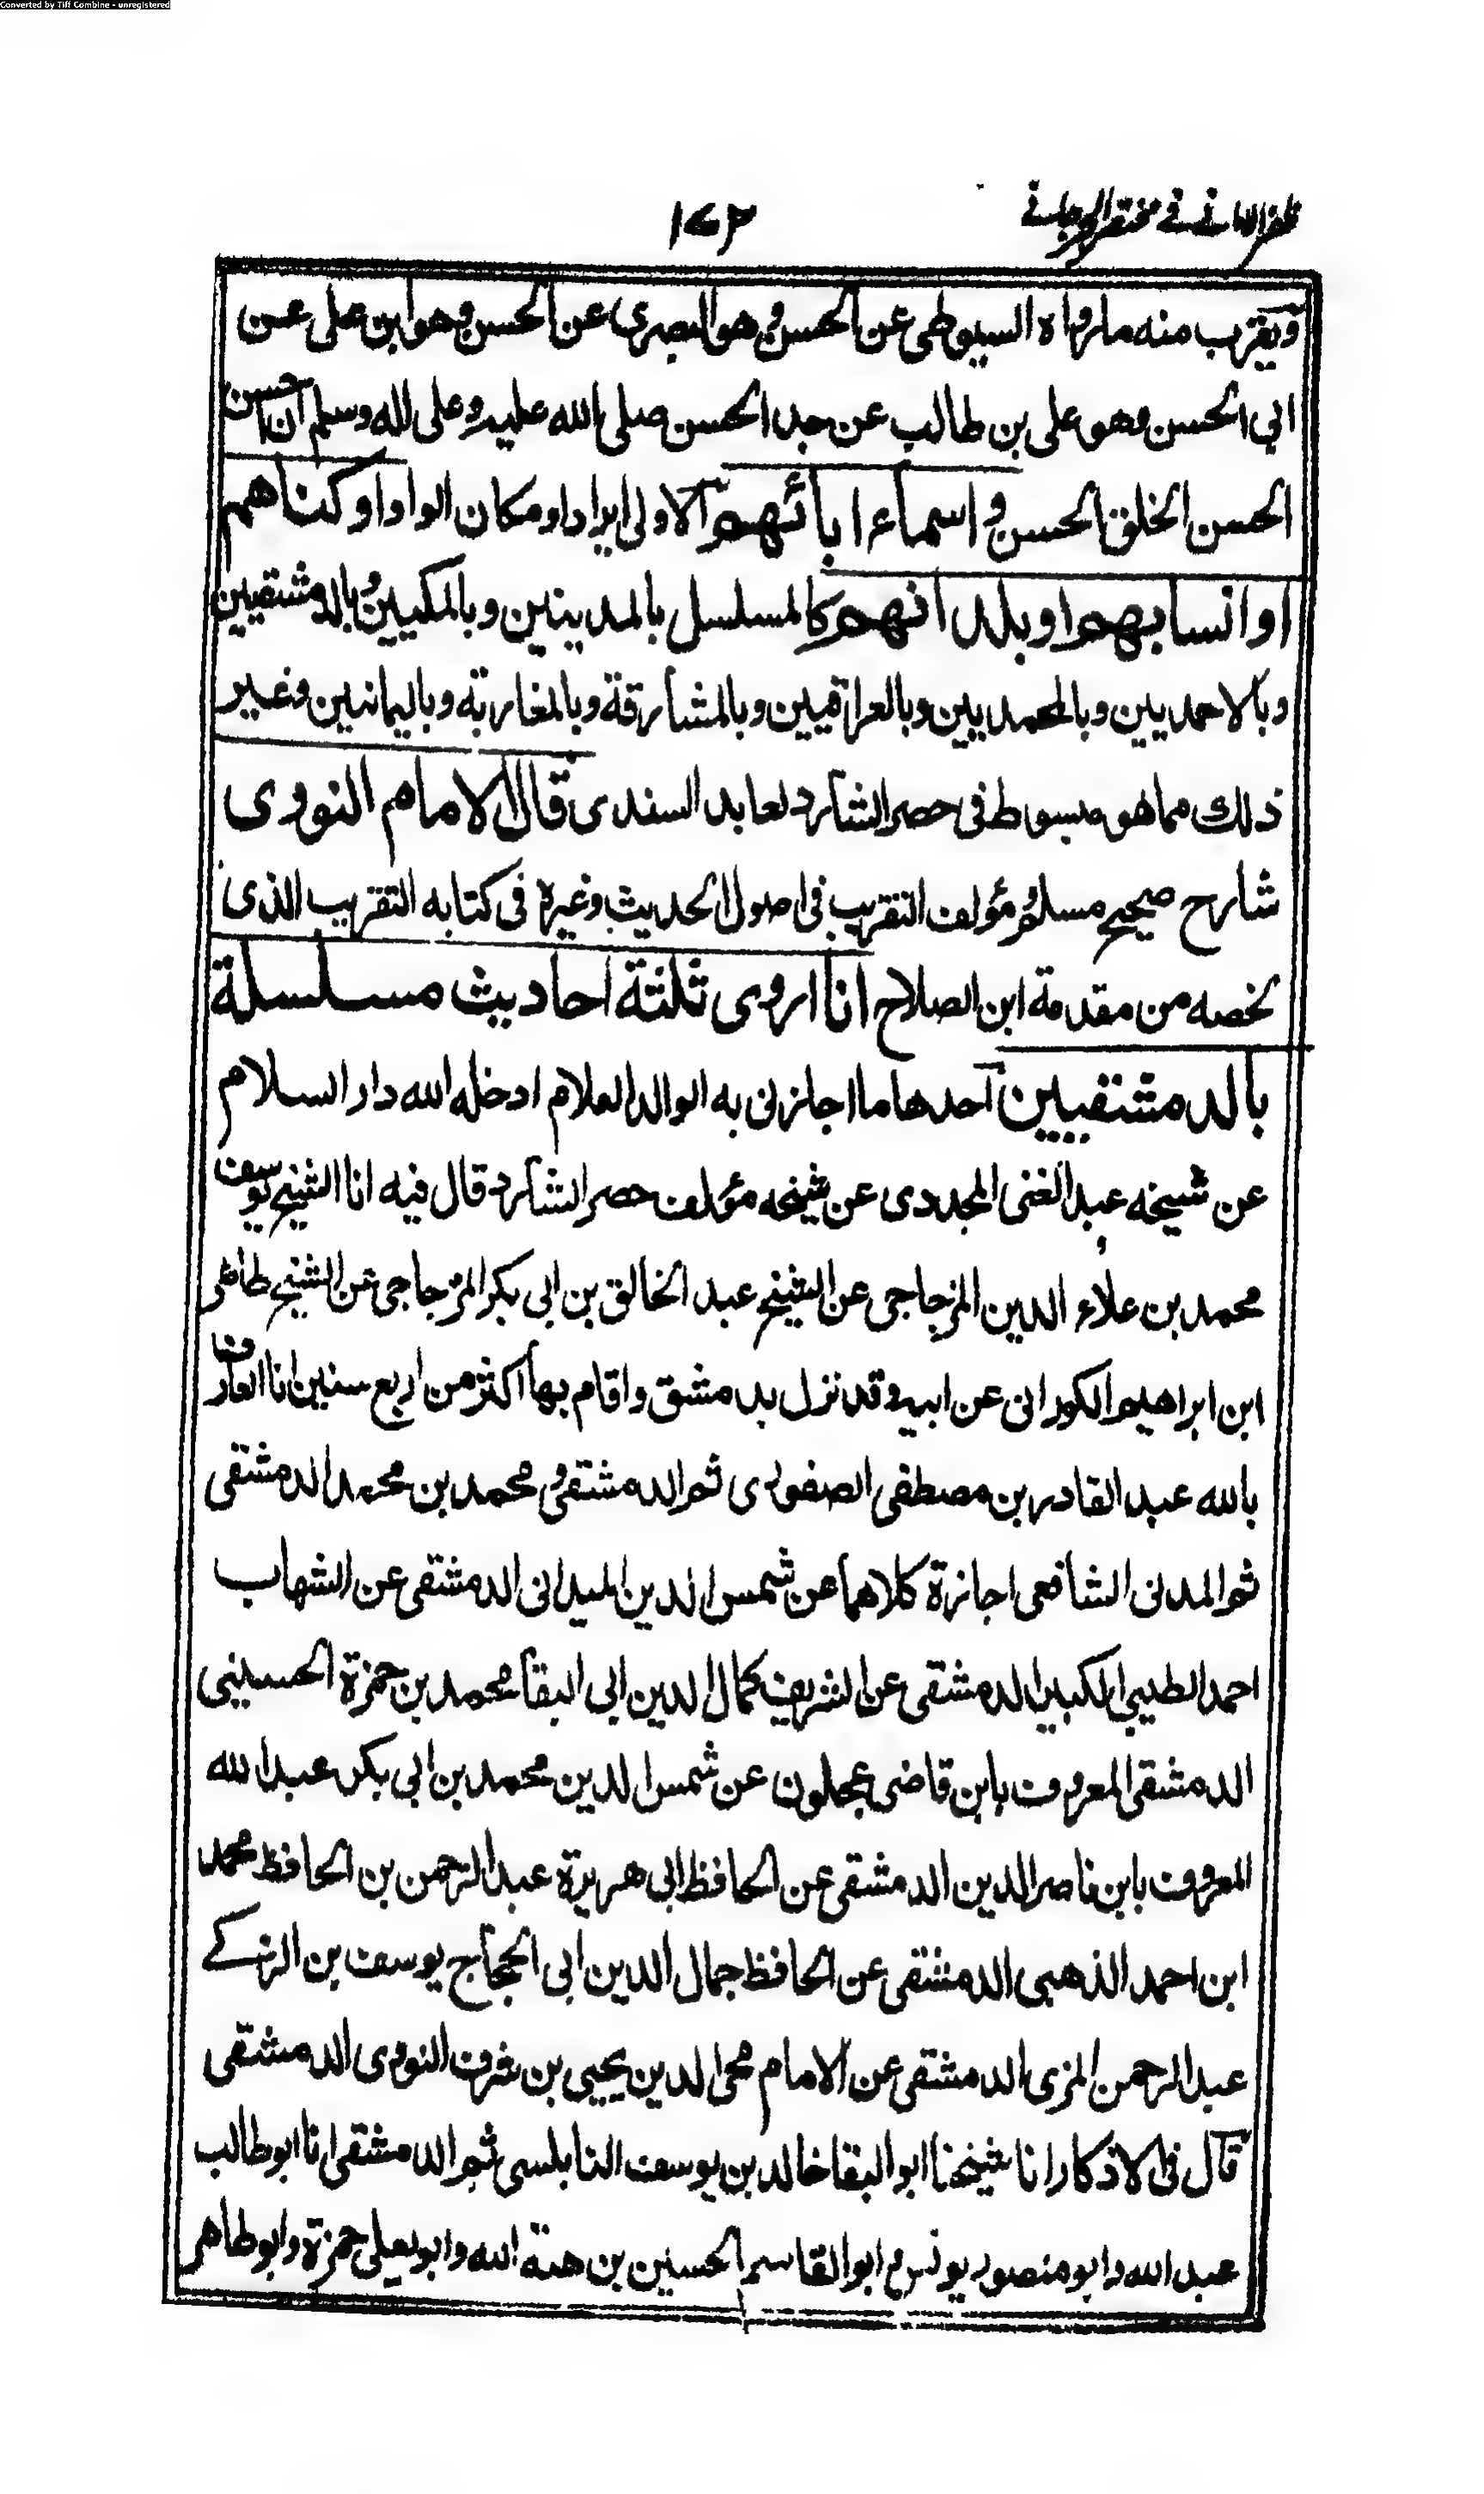 Converted by Tiff Combine - unregistered
ظفر الاماني في مختصر الجرجاني
١٧٢
ويقرب منه ما رواه السيوطي عن الحسن وهو البصرى عن الحسن وهو ابن على عن
ابي الحسن وهو على بن طالب عن جد الحسن صلى الله عليه وعلى اله وسلم ان احسن
الحسن الخلق الحسن و اسماء ابائهم الاولى ايراد او مكان الواو او كناهم
او انسابهم او بلدانهم كالمسلسل بالمدينين وبالمكيين وبالدمشقيين
وبالاحمديين وبالمحمديين وبالعراقيين وبالمشارقة وبالمغاربة وباليمانيين وغير
ذلك مما هو مبسوط فى حصر الشارد لعابد السندى قال الامام النووى
شارح صحيح مسلم ومؤلف التقريب فى اصول الحديث وغيره فى كتابه التقريب الذى
لخصه من مقدمة ابن الصلاح انا اروى ثلثة احاديث مسلسلة
بالدمشقيين احدها ما اجازنى به الوالد العلام ادخله الله دار السلام
عن شيخه عبد الغنى المجددى عن شيخه مؤلف حصر الشارد قال فيه انا الشيخ يوسف
محمد بن علاء الدين المزجاجى عن الشيخ عبد الخالق بن ابى بكر المزجاجى عن الشيخ طاهر
ابن ابراهيم الكورانى عن ابيه وقد نزل بدمشق واقام بها اكثر من اربع سنين انا العارف
بالله عبد القادر بن مصطفى الصفورى ثم الدمشقى و محمد بن محمد الدمشقى
ثم المدنى الشافعى اجازة كلاهما عن شمس الدين الميدانى الدمشقى عن الشهاب
احمد الطيبى الكبير الدمشقى عن الشريف كمال الدين ابى البقا محمد بن حمزة الحسينى
الدمشقى المعروف بابن قاضى عجلون عن شمس الدين محمد بن ابى بكر عبد الله
المعروف بابن ناصر الدين الدمشقى عن الحافظ ابى هريرة عبد الرحمن بن الحافظ محمد
ابن احمد الذهبى الدمشقى عن الحافظ جمال الدين ابى الحجاج يوسف بن الزكے
عبد الرحمن المزى الدمشقى عن الامام محى الدين يحيى بن شرف النووى الدمشقى
قال فى الاذكار انا شيخنا ابو البقا خالد بن يوسف النابلسى ثم الدمشقى انا ابو طالب
عبد الله وابو منصور يونس و ابو القاسم الحسين بن هبة الله وابو يعلى حمزة وابو طاهر